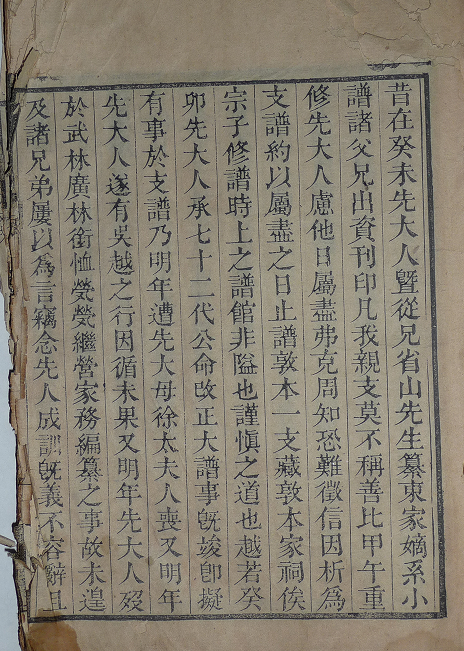 昔在癸未先大人曁從兄省山先生纂東家嫡系小
譜諸父兄出資刊印凡我親支莫不稱善比甲午重
修先大人慮他日屬盡弗克周知恐難徵信因析為
支譜約以屬盡之日止譜敦本一支藏敦本家祠俟
宗子修譜時上之譜館非隘也謹慎之道也越若癸
卯先大人承七十二代公命改正大譜事旣竣卽擬
有事於支譜乃明年遭先大母徐太夫人喪又明年
先大人遂有吳越之行因循未果又明年先大人歿
於武林廣林銜恤煢煢繼營家務編纂之事故未遑
及諸兄弟屢以為言竊念先人成訓旣義不容辭且